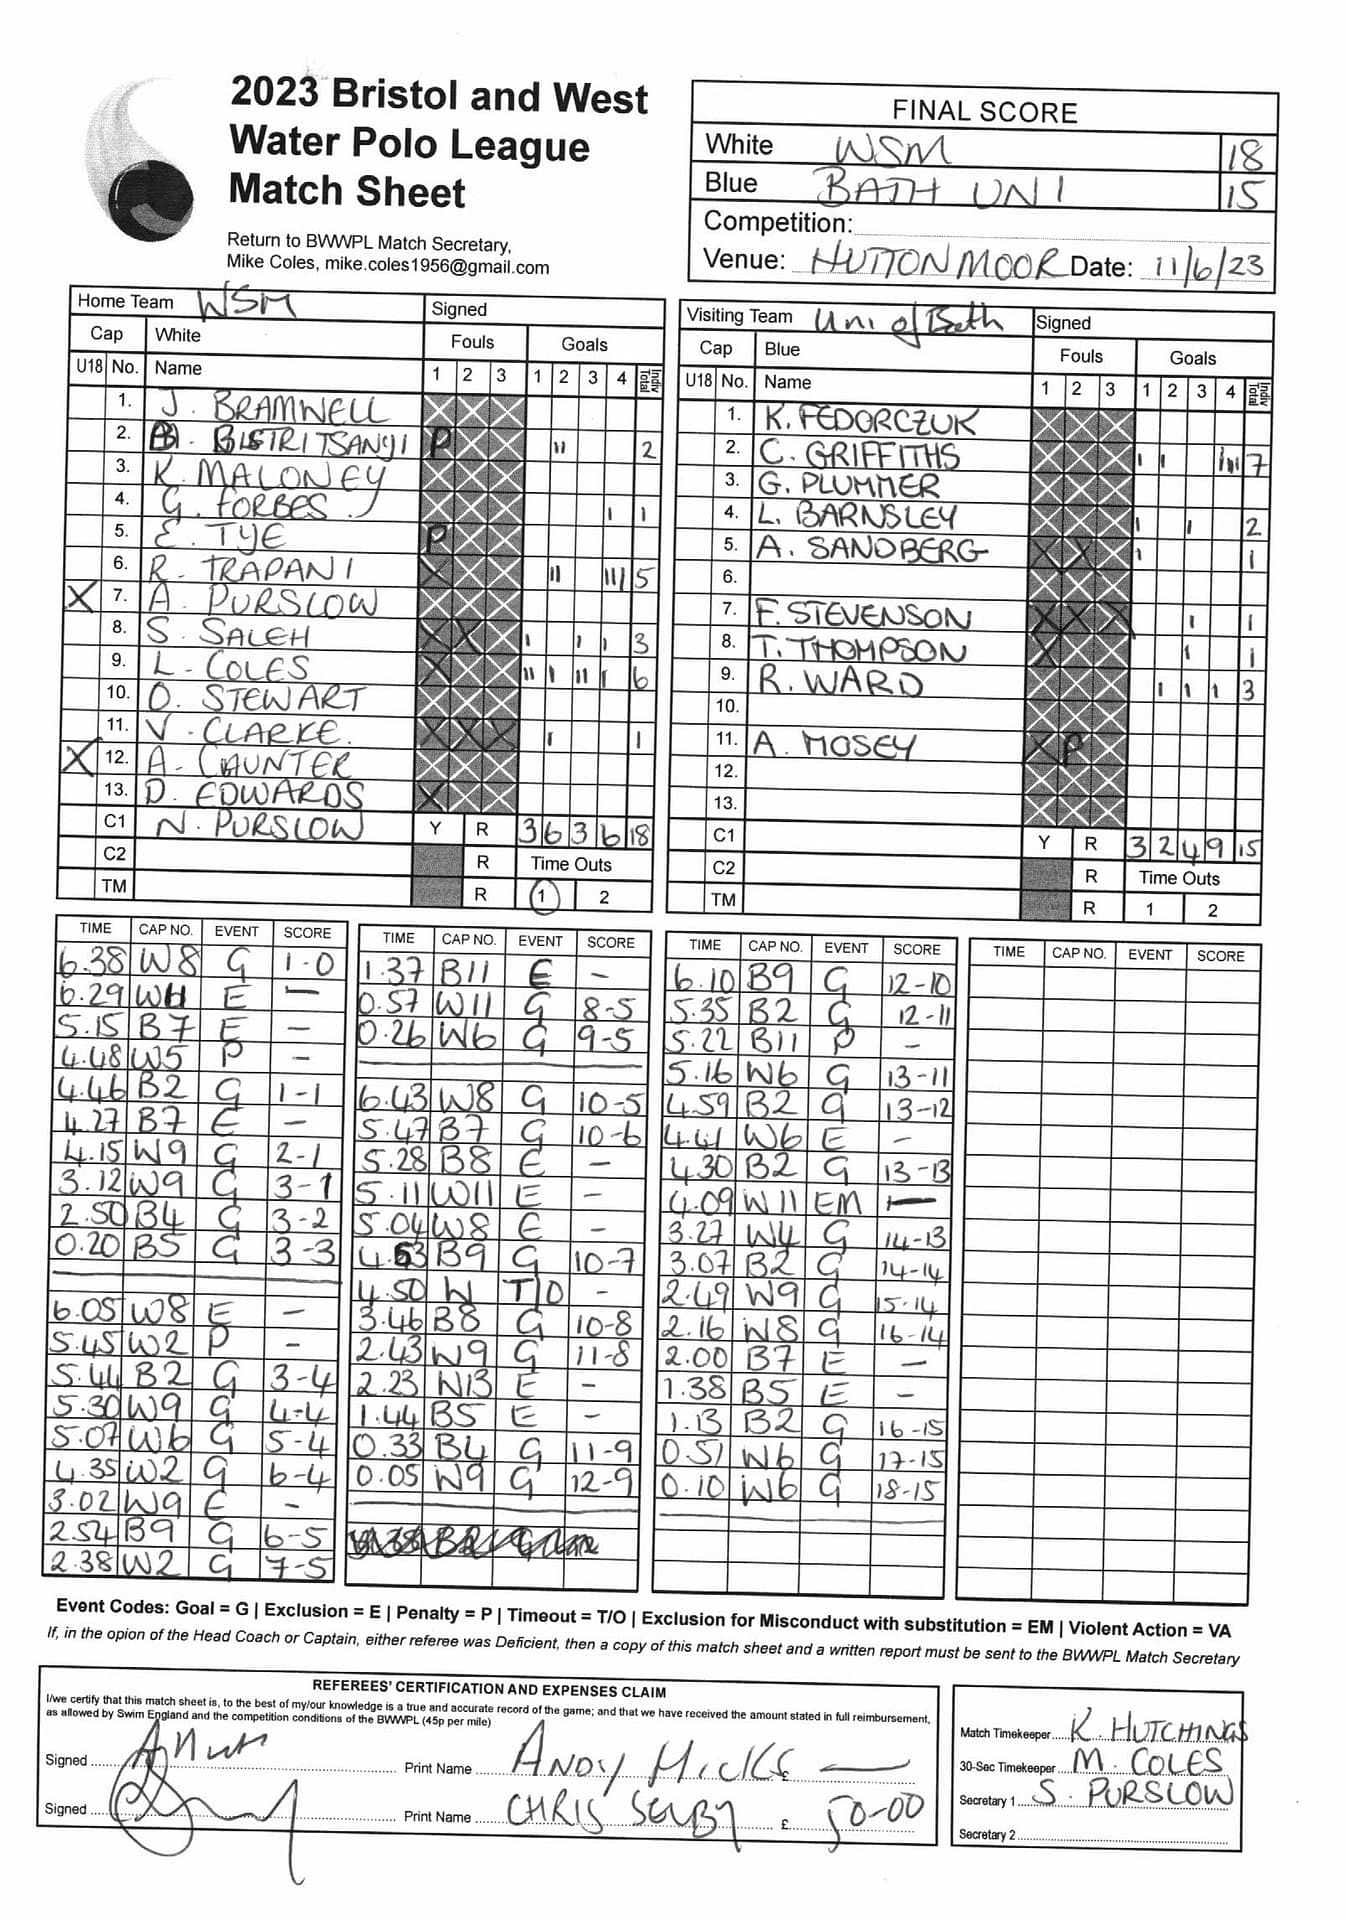 2023 Bristol and West
Water Polo League
Match Sheet
Return to BWWPL Match Secretary,
Mike Coles, mike.coles1956@gmail.com
FINAL SCORE
White WSM 18
Blue BATH UNI 15
Competition:
Venue: HUTTON MOOR Date: 11/6/23
Home Team WSM Signed
Cap White Fouls Goals
U18 No. Name 1 2 3 1 2 3 4 Indiv Total
1. J. BRAMWELL
2. BISTRITSANYI P 11 2
3. K. MALONEY
4. G. FORBES 1 1
5. E. TYE P
6. R. TRAPANI X 11 111 5
X 7. A. PURSLOW
8. S. SALEH X X 1 1 1 3
9. L. COLES X 11 1 11 1 6
10. O. STEWART
11. V. CLARKE. X X X 1 1
X 12. A. CAUNTER
13. D. EDWARDS X
C1 N. PURSLOW Y R 3 6 3 6 18
C2 R Time Outs
TM R 1 2
Visiting Team Uni of Bath Signed
Cap Blue Fouls Goals
U18 No. Name 1 2 3 1 2 3 4 Indiv Total
1. K. FEDORCZUK
2. C. GRIFFITHS 1 1 11111 7
3. G. PLUMMER
4. L. BARNSLEY 1 1 2
5. A. SANDBERG X X 1 1
6.
7. F. STEVENSON X X X 1 1
8. T. THOMPSON X 1 1
9. R. WARD 1 1 1 3
10.
11. A. MOSEY X P
12.
13.
C1 Y R 3 2 4 9 15
C2 R Time Outs
TM R 1 2
TIME CAP NO. EVENT SCORE
6.38 W8 G 1-0
6.29 W11 E —
5.15 B7 E —
4.48 W5 P —
4.46 B2 G 1-1
4.27 B7 E —
4.15 W9 G 2-1
3.12 W9 G 3-1
2.50 B4 G 3-2
0.20 B5 G 3-3
6.05 W8 E —
5.45 W2 P —
5.44 B2 G 3-4
5.30 W9 G 4-4
5.07 W6 G 5-4
4.35 W2 G 6-4
3.02 W9 E -
2.54 B9 G 6-5
2.38 W2 G 7-5
TIME CAP NO. EVENT SCORE
1.37 B11 E —
0.57 W11 G 8-5
0.26 W6 G 9-5
6.43 W8 G 10-5
5.47 B7 G 10-6
5.28 B8 E —
5.11 W11 E —
5.04 W8 E —
4.53 B9 G 10-7
4.50 W T/O -
3.46 B8 G 10-8
2.43 W9 G 11-8
2.23 W13 E -
1.44 B5 E —
0.33 B4 G 11-9
0.05 W9 G 12-9
TIME CAP NO. EVENT SCORE
6.10 B9 G 12-10
5.35 B2 G 12-11
5.22 B11 P —
5.16 W6 G 13-11
4.59 B2 G 13-12
4.41 W6 E —
4.30 B2 G 13-13
4.09 W11 EM —
3.27 W4 G 14-13
3.07 B2 G 14-14
2.49 W9 G 15-14
2.16 W8 G 16-14
2.00 B7 E —
1.38 B5 E —
1.13 B2 G 16-15
0.51 W6 G 17-15
0.10 W6 G 18-15
TIME CAP NO. EVENT SCORE
Event Codes: Goal = G | Exclusion = E | Penalty = P | Timeout = T/O | Exclusion for Misconduct with substitution = EM | Violent Action = VA
If, in the opion of the Head Coach or Captain, either referee was Deficient, then a copy of this match sheet and a written report must be sent to the BWWPL Match Secretary
REFEREES' CERTIFICATION AND EXPENSES CLAIM
I/we certify that this match sheet is, to the best of my/our knowledge is a true and accurate record of the game; and that we have received the amount stated in full reimbursement,
as allowed by Swim England and the competition conditions of the BWWPL (45p per mile)
Signed Print Name ANDY HICKS £ —
Signed Print Name CHRIS SELBY £ 50-00
Match Timekeeper K. HUTCHINGS
30-Sec Timekeeper M. COLES
Secretary 1 S. PURSLOW
Secretary 2